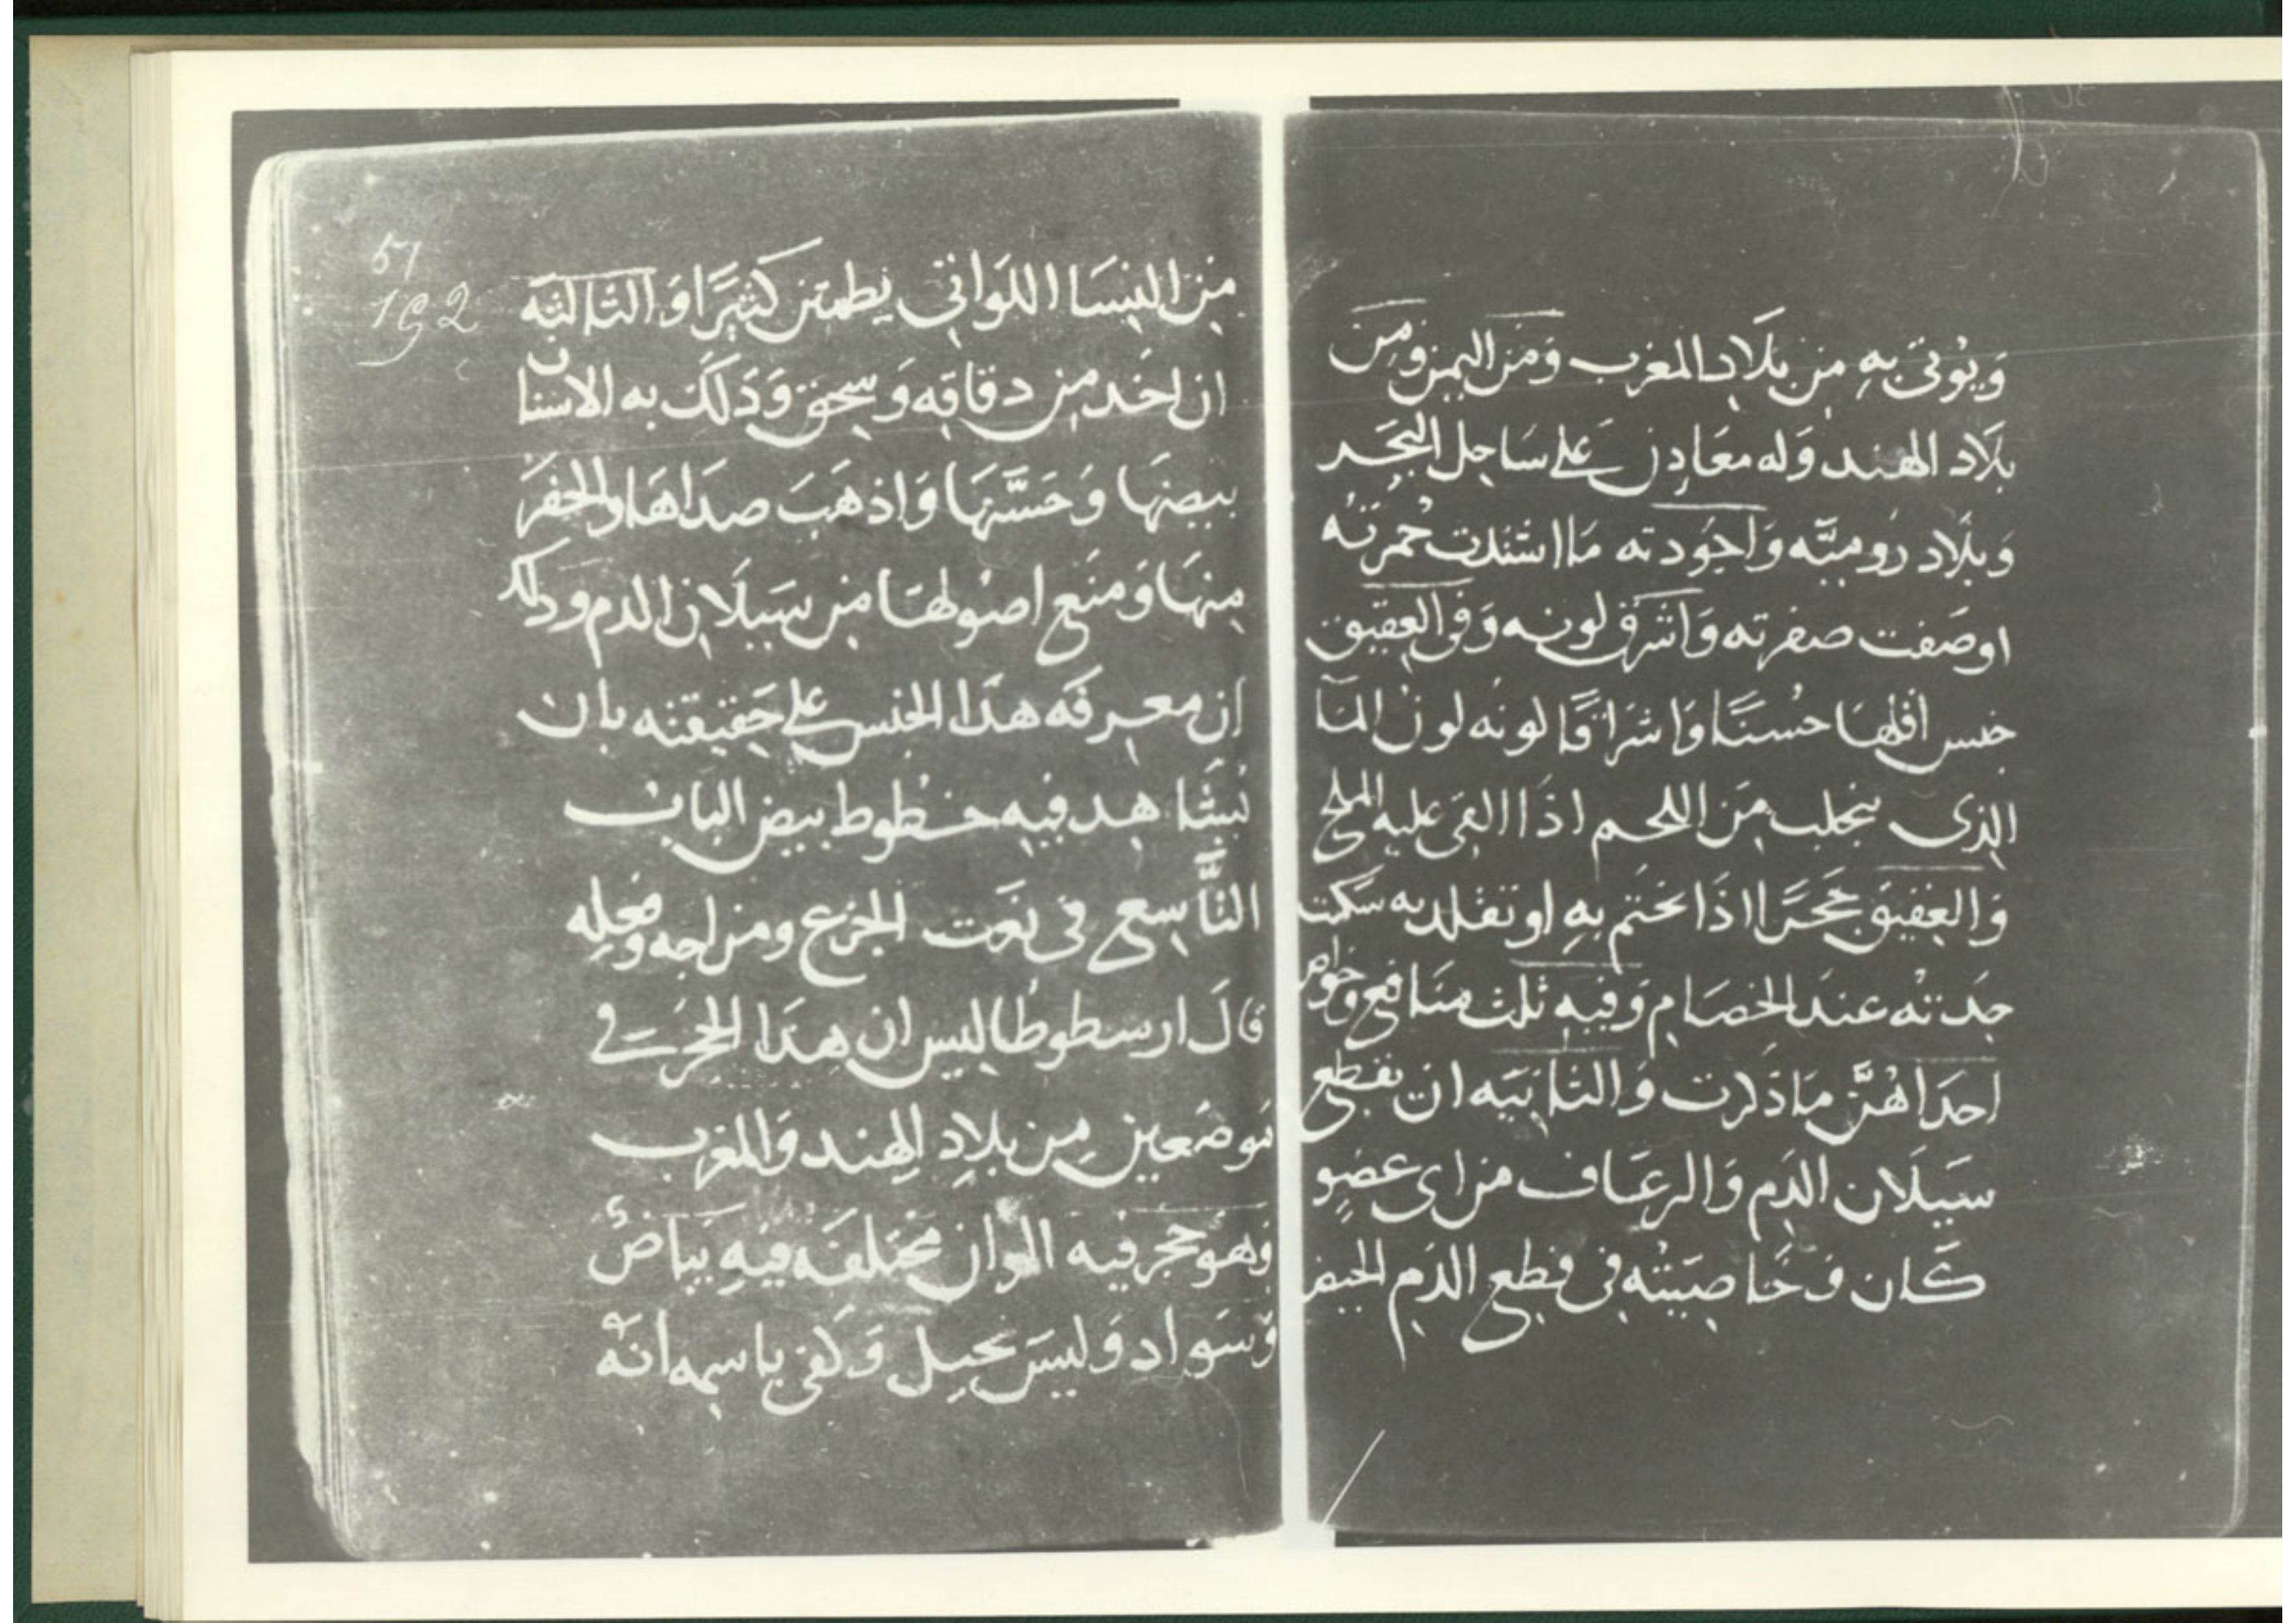 وَيوُتىَ بهِ مِن بلَادِ المغرب وَمنَ اليمن ومِنَ
بلَاد الهند وَله معَادِن عَلى سَاحِل البحَر
وَبلَاد رُوميَّه وَاجوُدته مَا اشتدت حُمرتُه
اوصَفت صفرته وَاشرق لونه وَفى العقيق
جنس اقلها حسُنًا وَاشرَاقًا لونه لونُ المآ
الذِى ينجلب مِنَ اللحم اذَا القىَ عليه الملح
وَالعِقيق حَجَرًا اذَا تختم بهِ او تقلد به سَكنت
حِدته عندَ الخصَام وَفيهِ ثلث منَافع وخواص
احدَاهُنَّ مَا ذكرت وَالثانيَه ان يقطع
سَيلَان الدَم وَالرعَاف من اى عضوٍ
كَان وَخَاصِيَتْه فى قطع الدَم الحيض
51
192
مِن النِسَا اللوَاتى يطمثن كثيرًا وَالثالثه
ان اخَد مِن دقاقه وَسحق وَدَلكَ به الاسنان
بيضهَا وَحَسَّنهَا وَاذهَبَ صدَاهَا والحفرَ
مِنهَا وَمنَع اصُولهَا مِن سَيلَان الدم ودلك
ان معرفَه هذَا الجنس على حَقيقته بان
يُشَاهِد فيِه خطُوط بيض الباب
التَّاسِع فى نعَت الجزع ومزاجه وفعله
قالَ ارسطوطاليس ان هذَا الحجَر فى
مَوضَعين مِن بلَادِ الهِند وَالمغرب
وَهوَ حجر فيه الوان مختلفَه فيهِ بيَاضٌ
وَسَوَاد وَليسَ بحيل وَكفىَ باسمِه انهُ